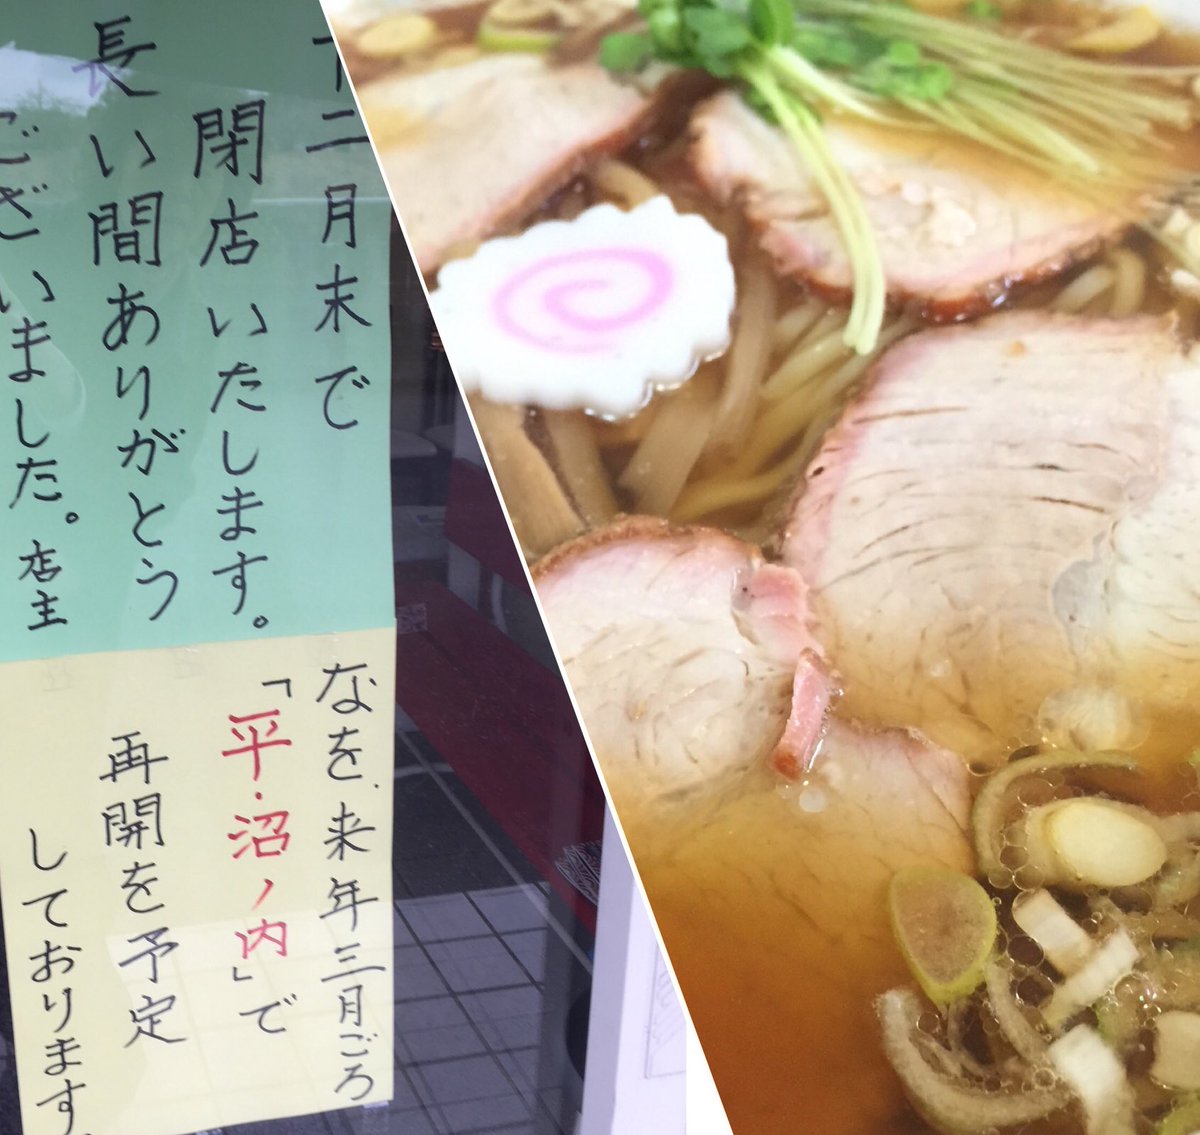 十二月末で
閉店いたします。
長い間ありがとう
ございました。店主
なを、来年三月ごろ
「平・沼ノ内」で
再開を予定
しております。